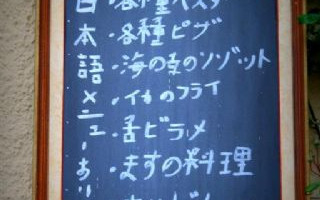 日本語メニューあり
・各種パスタ
・各種ピザ
・海の幸のソゾット
・イカのフライ
・舌ビラメ
・ますの料理